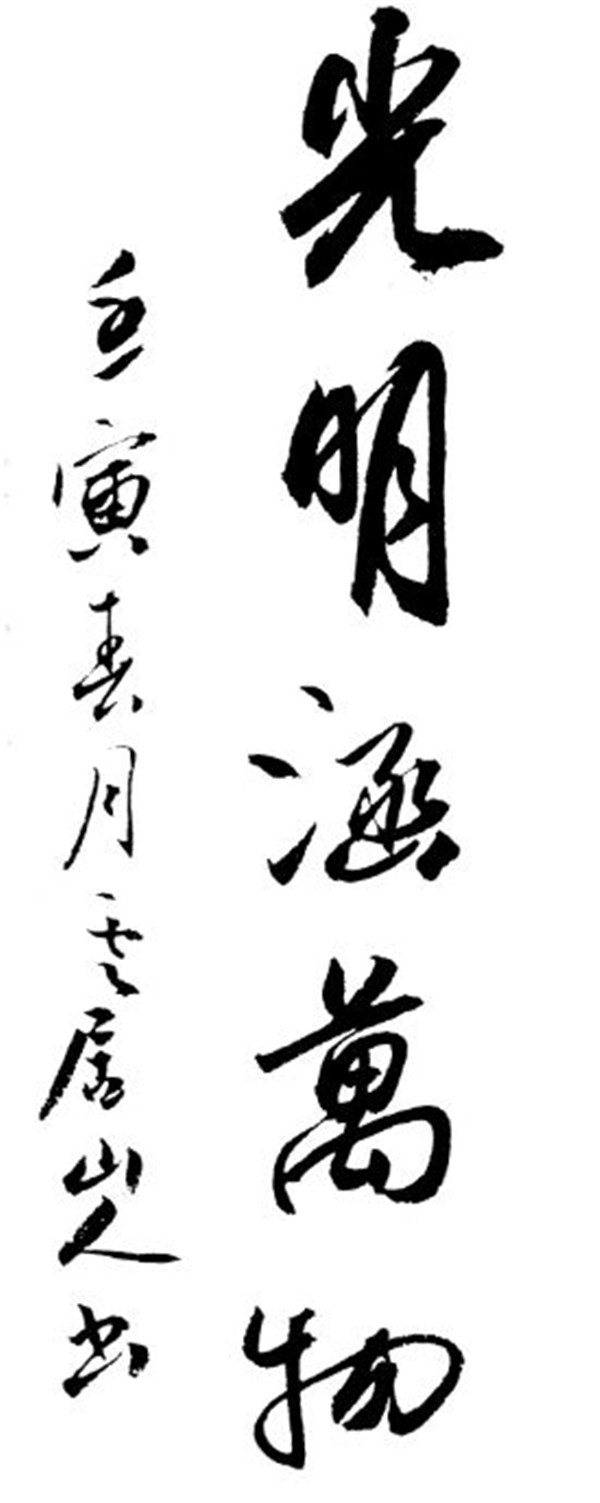 光明涵萬物
壬寅春月雲居山人书